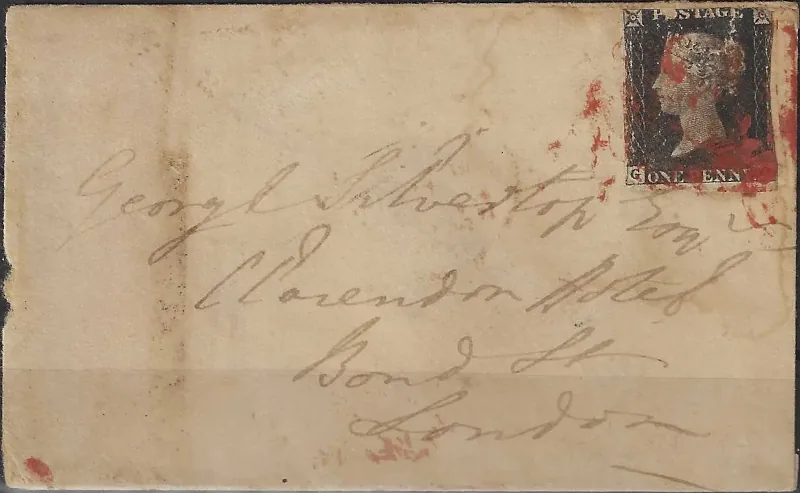 POSTAGE
G ONE PENNY
George Silvertop Esqr
Clarendon Hotel
Bond St
London